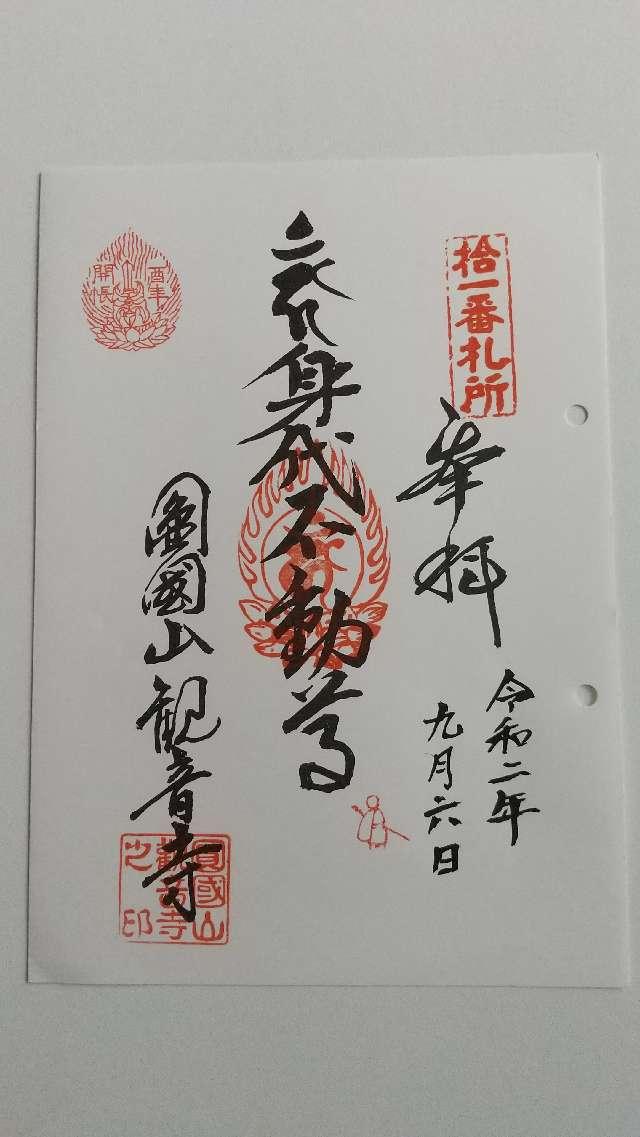 拾一番札所
奉拝
令和二年
九月六日
身代不動尊
酉年
開帳
圓國山観音寺
圓國山
観音寺
之印